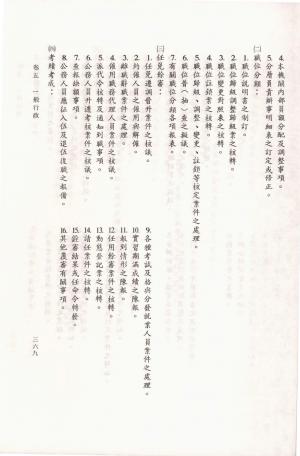 4.本機關內部員額分配及調整事項。
5.分層負責辦事明細表之訂定或修正。
㈡職位分類：
1.職位說明書之制訂。
2.職位歸級調整歸級案之核轉。
3.職位變更對照表之核轉。
4.職位註銷案之核轉。
5.職位歸級、調整、變更、註銷等核定案件之處理。
6.職位普(抽)查之擬議。
7.有關職位分類各項報表。
㈢任免銓審：
1.任免遷調晉升案件之核議。
2.約僱人員之僱用與解僱。
3.離職辭職案件之處理。
4.僱用職務代理人案件之核議。
5.派代令稿核轉及通知到職事項。
6.公務人員升遷考核案件之核議。
7.查報捻額事項。
8.公務人員應征入伍及退伍復職之報備。
9.各種考試及格與分發就業人員案件之處理。
10.實習期滿成績之陳報。
11.報到情形之陳報。
12.任用銓審案件之核轉。
13.動態登記案之核轉。
14.請任案件之核轉。
15.銓審結果或任命令轉發。
16.其他銓審有關事項。
㈣考績考成：
卷五　一般行政
三六九